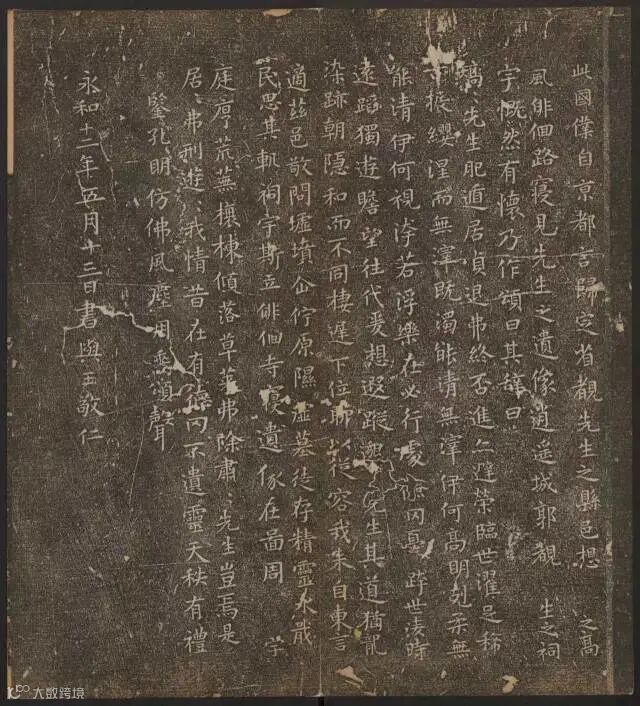 此國僕自京都言歸定省覩先生之縣邑想 之高
風俳佪路寢見先生之遺像逍遥城郭觀 生之祠
宇慨然有懷乃作頌曰其辭曰
矯、先生肥遁居貞退弗終否進亦避榮臨世濯足稀
振纓涅而無滓既濁能清無滓伊何高明剋柔無
能清伊何視汙若浮樂在必行處儉罔憂跨世淩時
遠蹈獨遊瞻望往代爰想遐蹤邈、先生其道猶龍
染跡朝隱和而不同棲遲下位聊以從容我來自東言
適茲邑敬問墟墳企佇原隰虛墓徒存精靈永戢
民思其軌祠宇斯立俳佪寺寢遺像在啚周 宇
庭序荒蕪榱棟傾落草萊弗除肅、先生豈焉是
居、弗刑遊、我情昔在有德罔不遺靈天秩有禮
鑒孔明仿佛風塵用垂頌聲
永和十二年五月十三日書與王敬仁
大数跨境